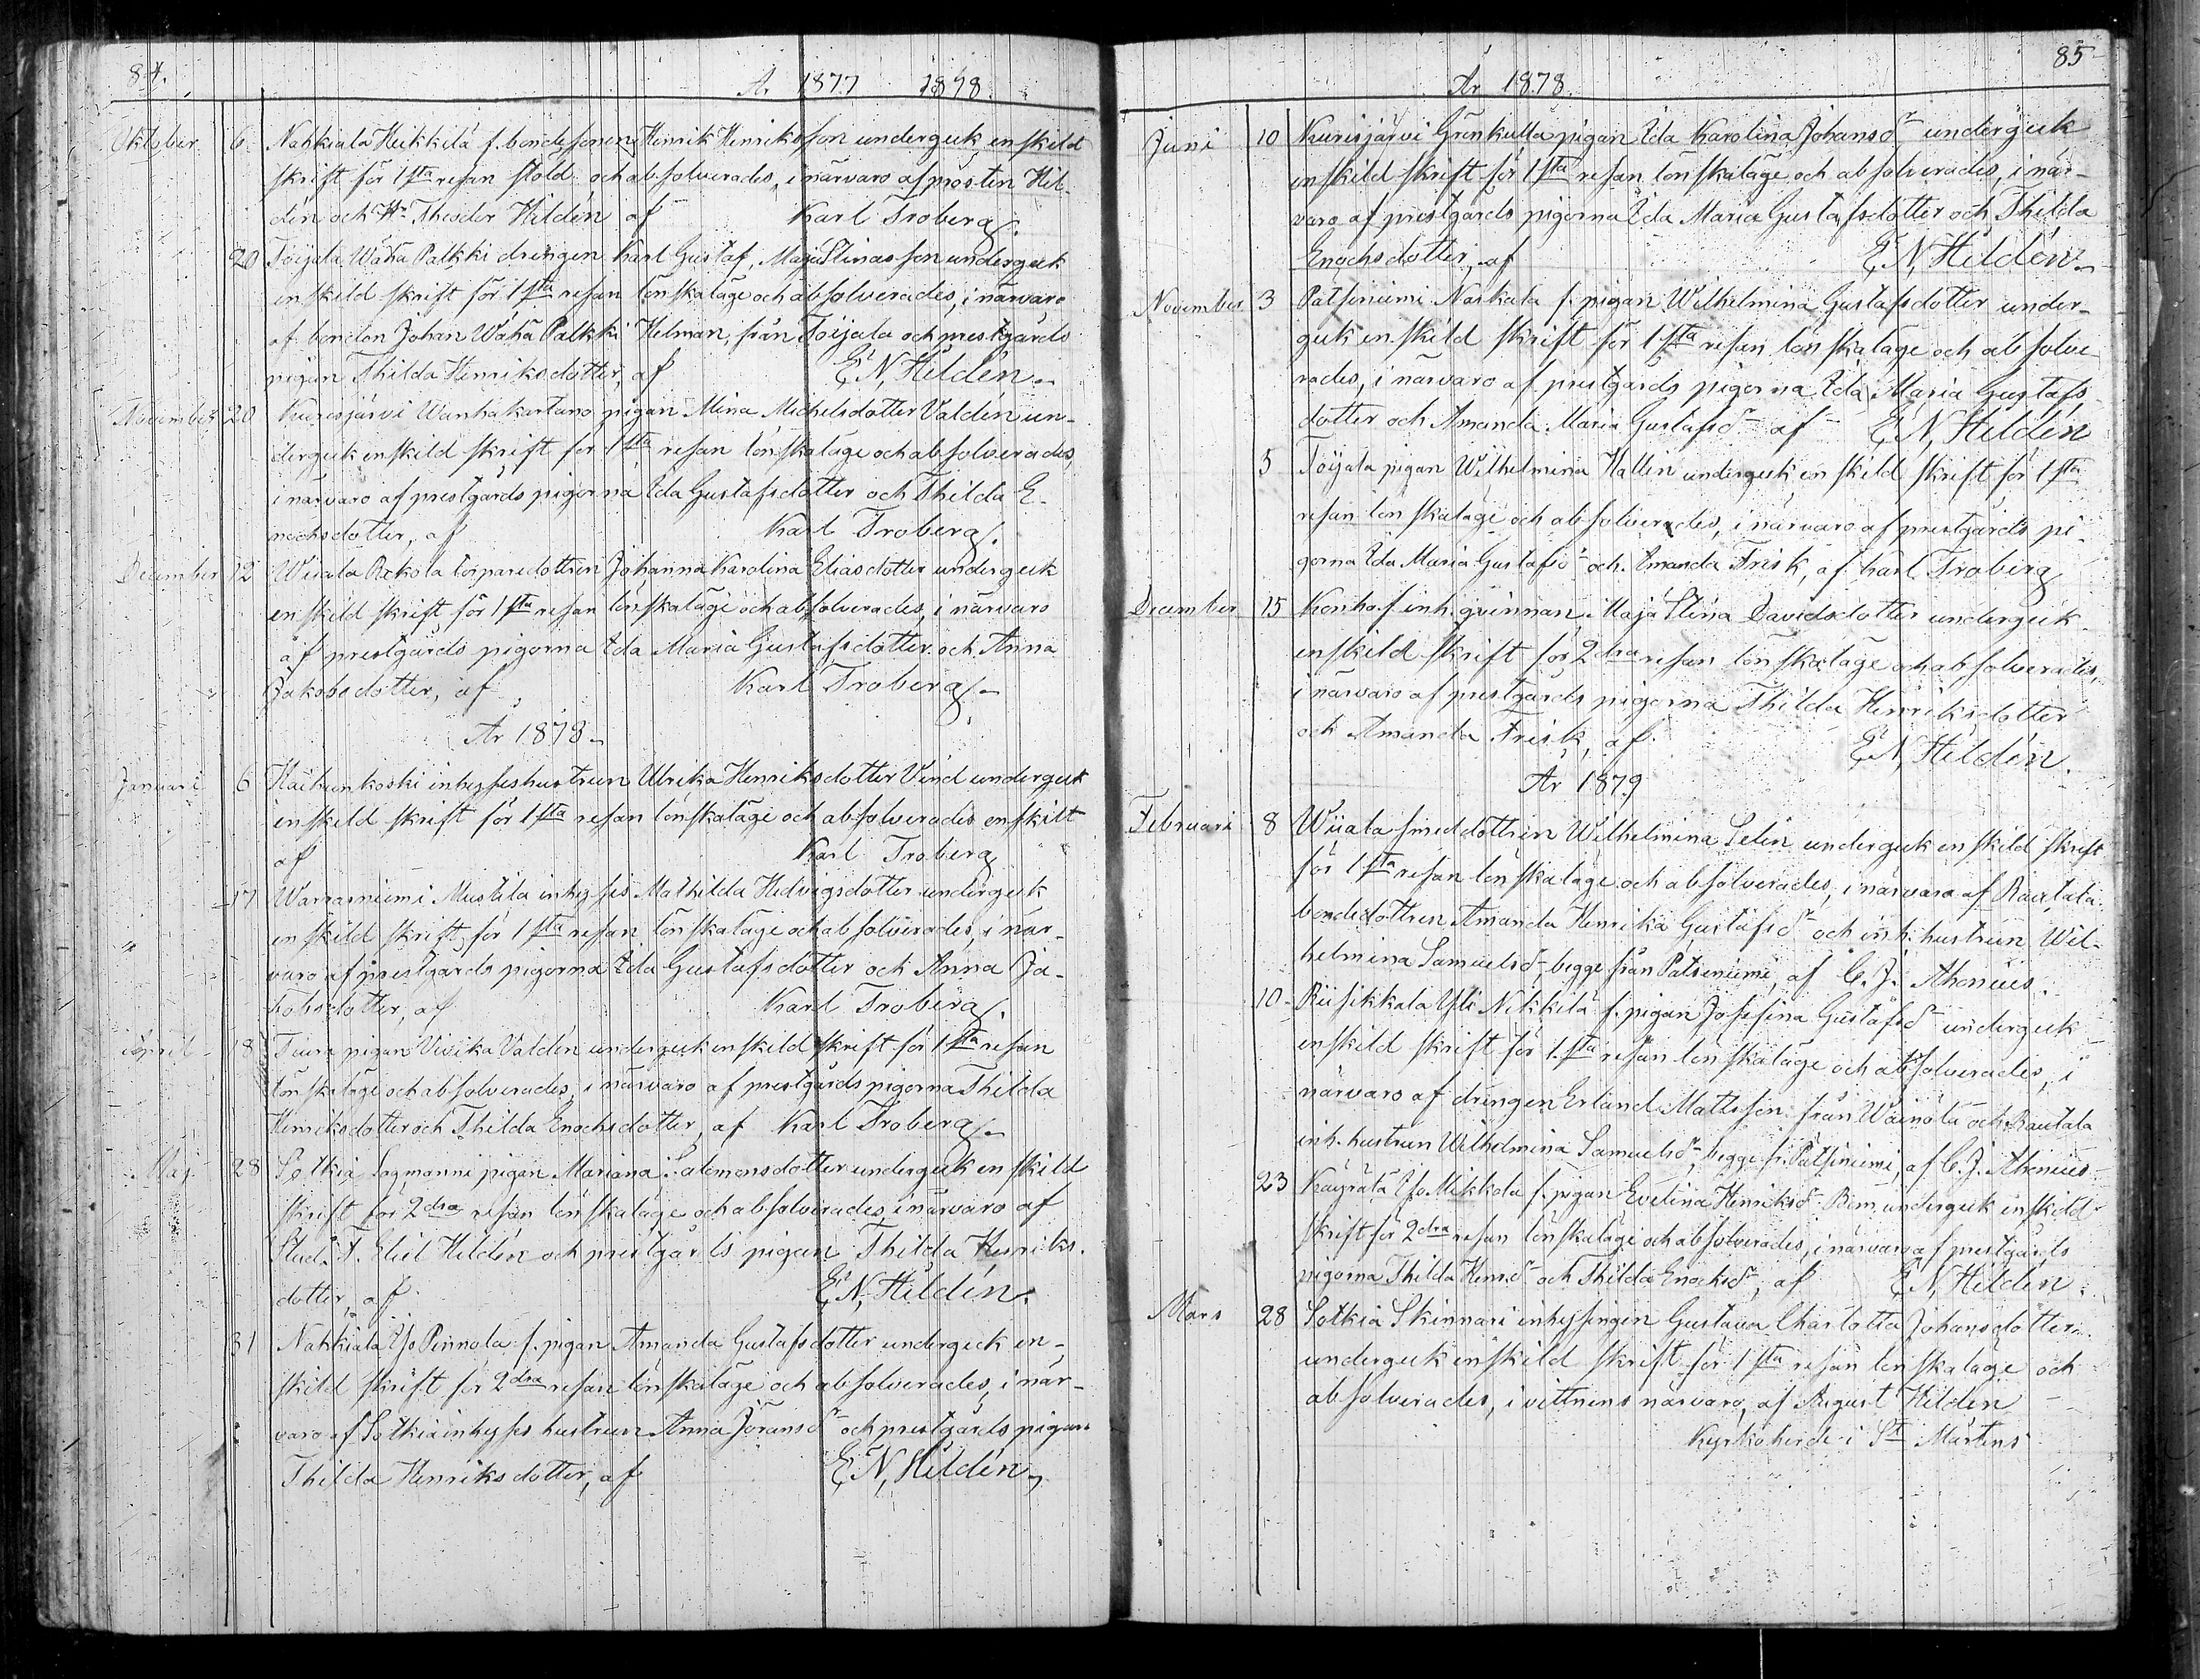 84.
År 1877 1878.
Oktober 6. Nahkiala Heikkilä f. bondesonen Henrik Henriksson undergick enskild
skrift för 1sta resan stöld och absolverades, i närvaro af prosten Hil-
dén och Hr Theodor Hildén af Karl Troberg.
20 Toijala Wähä Palkki drengen Karl Gustaf, Maja Stinas son undergick
enskild skrift för 1sta resan lönskaläge och absolverades, i närvaro
af bonden Johan Wähä Palkki Helman, från Toijala och prestgårds
pigan Thilda Henriksdotter, af E. N. Hildén.
November 20 Kurisjärvi Wanhakartano pigan Mina Michelsdotter Valdén un-
dergick enskild skrift för 1sta resan lönskaläge och absolverades,
i närvaro af prestgårds pigorna Ida Gustafsdotter och Thilda E-
nochsdotter, af Karl Troberg.
December 12 Wiiala torparedottren Johanna Karolina Eliasdotter undergick
enskild skrift för 1sta resan lönskaläge och absolverades, i närvaro
af prestgårds pigorna Ida Maria Gustafsdotter och Anna
Jakobsdotter, af Karl Troberg.
År 1878.
Januari 6 inhyseshustrun Ulrika Henriksdotter Vind undergick
enskild skrift för 1sta resan lönskaläge och absolverades enskilt
af Karl Troberg
17 Warrasniemi Mustila inhyses Mathilda Hedvigsdotter undergick
enskild skrift för 1sta resan lönskaläge och absolverades, i när-
varo af prestgårds pigorna Ida Gustafsdotter och Anna Ja-
kobsdotter, af Karl Troberg.
April 18 pigan Vivika Valdén undergick enskild skrift för 1sta resan
lönskaläge och absolverades, i närvaro af prestgårds pigorna Thilda
Henriksdotter och Thilda Enochsdotter, af Karl Troberg.
Maj 28 Sotkia Lagmanni pigan Mariana Salomonsdotter undergick enskild
skrift för 2dra resan lönskaläge och absolverades, i närvaro af
Stud. T. Eliel Hildén och prestgårds pigan Thilda Henriks-
dotter, af E. N. Hildén.
31 Nahkiala Yso Pinnola f. pigan Amanda Gustafsdotter undergick en-
skild skrift för 2dra resan lönskaläge och absolverades, i när-
varo af Sotkia inhyses hustrun Anna Göransdr och prestgårds pigan
Thilda Henriksdotter, af E. N. Hildén.
85
År 1878.
Juni 10 Kurisjärvi Grönkulla pigan Ida Karolina Johansdr undergick
enskild skrift för 1sta resan lönskaläge och absolverades, i när-
varo af prestgårds pigorna Ida Maria Gustafsdotter och Thilda
Enochsdotter, af E. N. Hildén.
November 3 Patsniemi Naskala f. pigan Wilhelmina Gustafsdotter under-
gick enskild skrift för 1sta resan lönskaläge och absolve-
rades, i närvaro af prestgårds pigorna Ida Maria Gustafs-
dotter och Amanda Maria Gustafsdr af E. N. Hildén
5 Toijala pigan Wilhelmina Hallin undergick enskild skrift för 1sta
resan lönskaläge och absolverades, i närvaro af prestgårds pi-
gorna Ida Maria Gustafsdr och Amanda Frisk, af Karl Troberg
December 15 Konho f. inh. qvinnan Maja Stina Davidsdotter undergick
enskild skrift för 2dra resan lönskaläge och absolverades,
i närvaro af prestgårds pigorna Thilda Henriksdotter
och Amanda Frisk, af E. N. Hildén.
År 1879
Februari 8 Wiiala smeddottren Wilhelmina Selin undergick enskild skrift
för 1sta resan lönskaläge och absolverades, i närvaro af Rautala
bondedottren Amanda Henrika Gustafsdr och inh. hustrun Wil-
helmina Samuelsdr begge från Patsniemi, af C. J. Athenius.
10 Riisikkala Yli Nikkilä f. pigan Josefina Gustafsdr undergick
enskild skrift för 1.sta resan lönskaläge och absolverades, i
närvaro af drengen Erland Mattsson från Wainola och Rautala
inh. hustrun Wilhelmina Samuelsdr, begge fr. Patsniemi, af C. J. Athenius
23 Käyrälä Yso Mikkola f. pigan Evelina Henriksdr undergick enskild
skrift för 2dra resan lönskaläge och absolverades, i närvaro af prestgårds
pigorna Thilda Henr.dr och Thilda Enochsdr, af E. N. Hildén.
Mars 28 Sotkia Skinnari inhysingen Gustava Charlotta Johansdotter
undergick enskild skrift för 1sta resan lönskaläge och
absolverades, i vittnens närvaro, af August Hildén
Kyrkoherde i St Mårtens